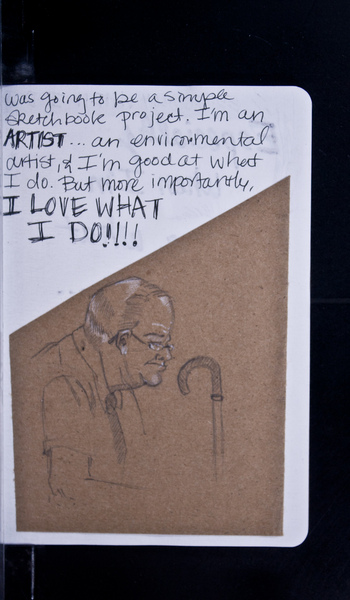 was going to be a simple
sketchbook project. I'm an
ARTIST... an environmental
artist, & I'm good at what
I do. But more importantly,
I LOVE WHAT
I DO!!!!